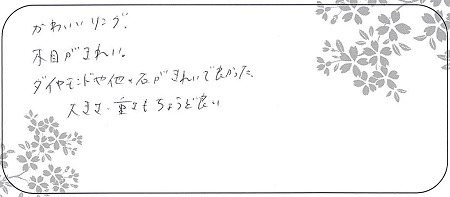 かわいいリング。
木目がきれい。
ダイヤモンドや他の石がきれいで良かった。
大きさ・重さもちょうど良い